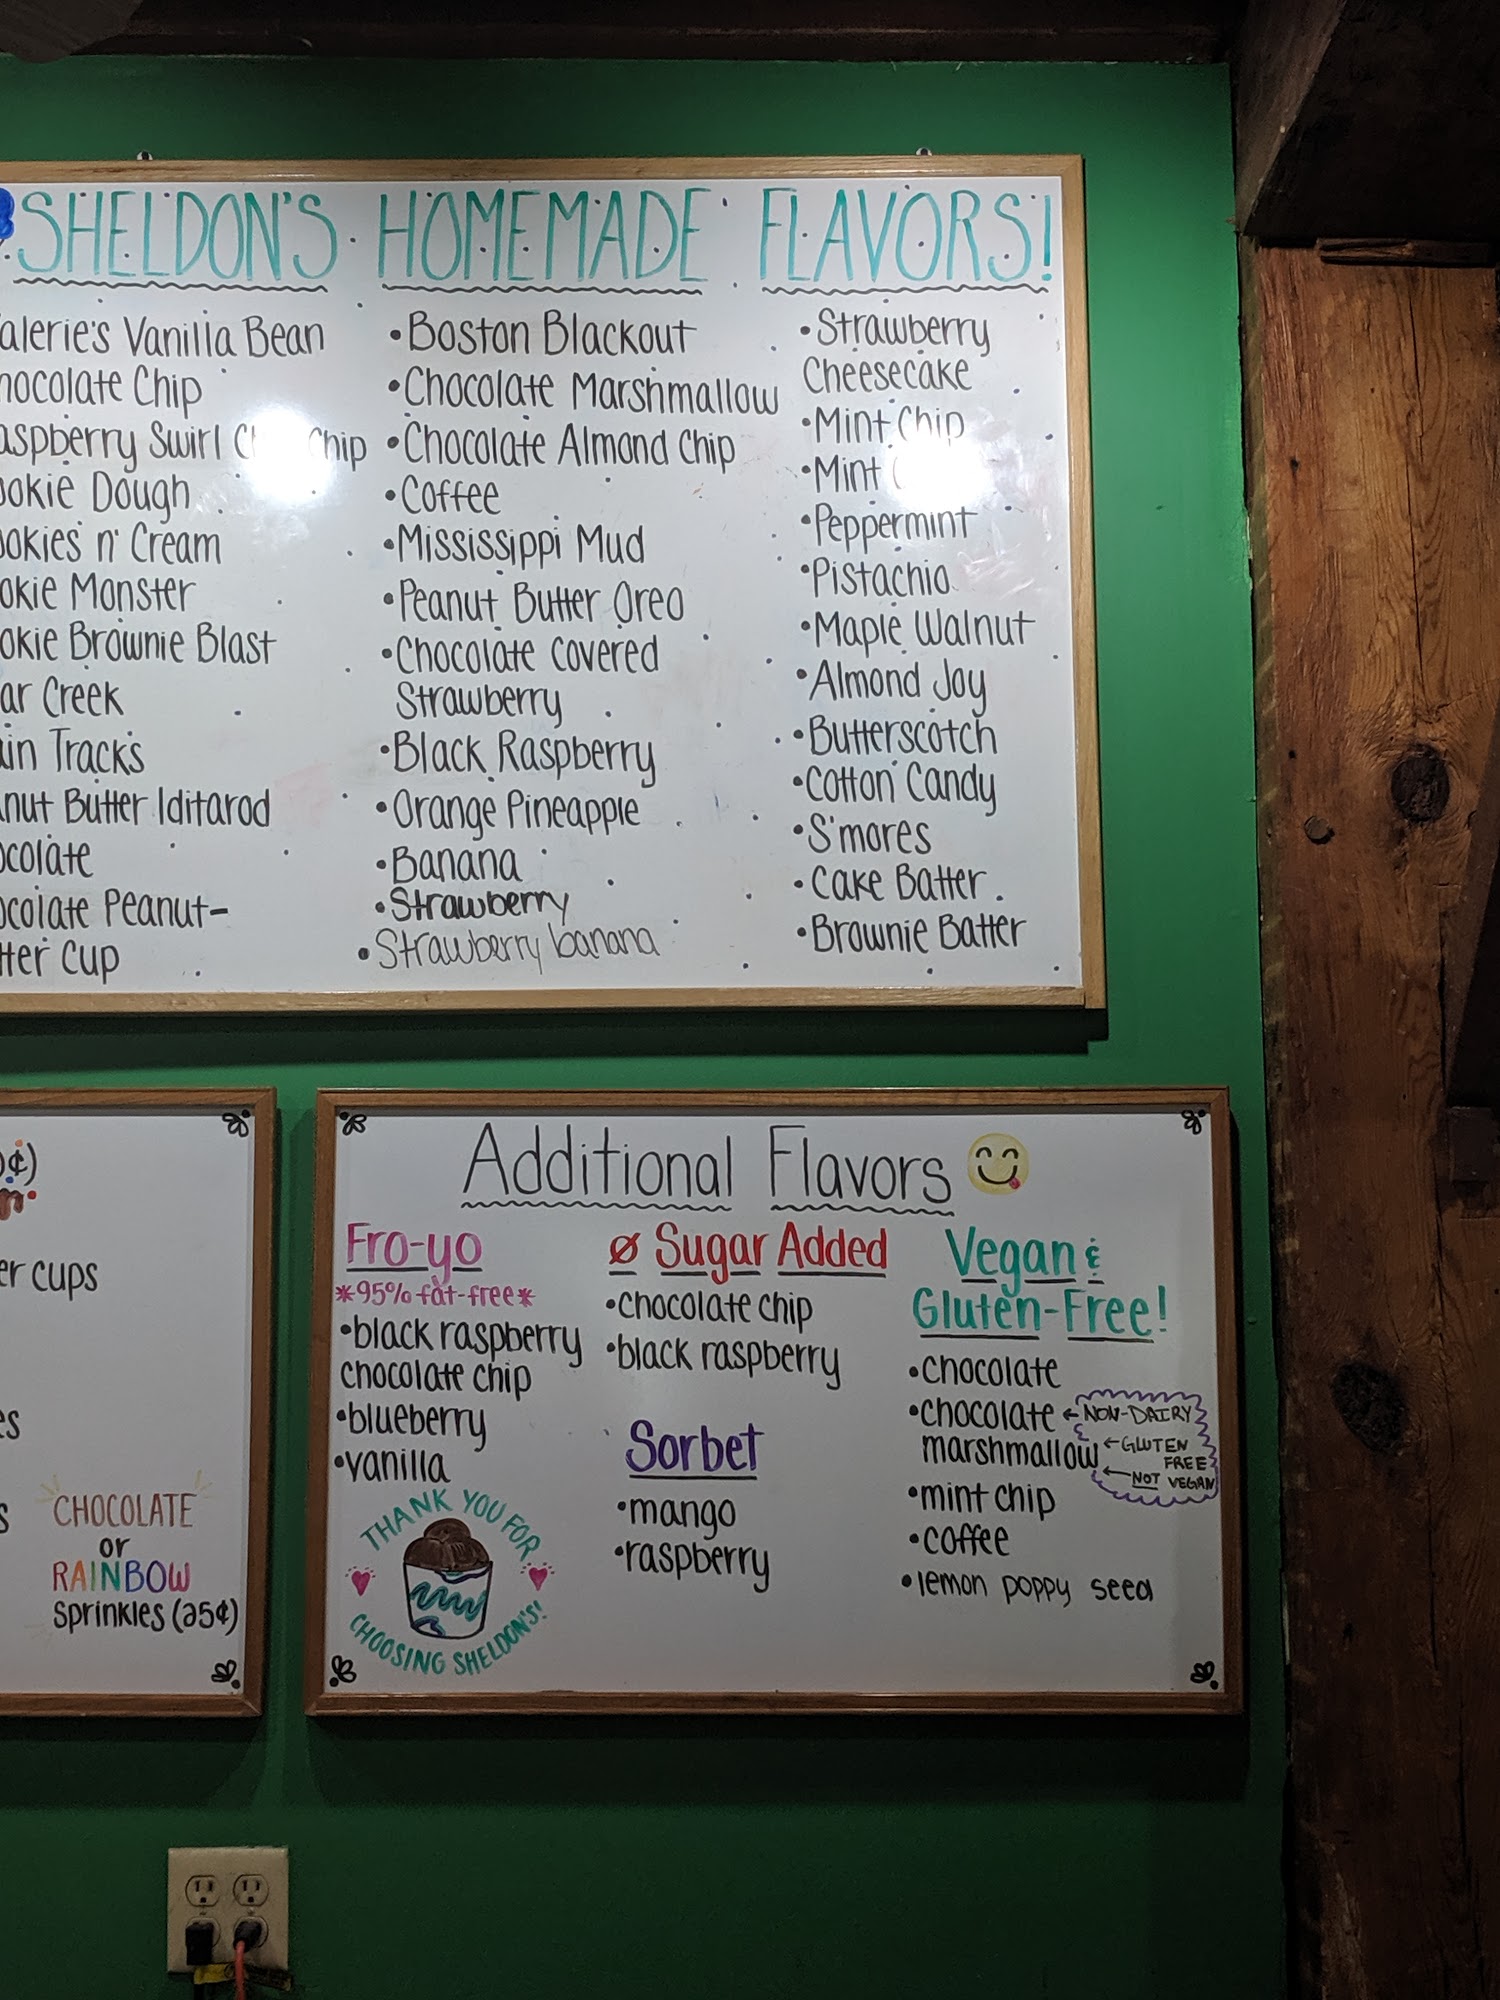 SHELDON'S HOMEMADE FLAVORS!
alerie's Vanilla Bean
hocolate Chip
aspberry Swirl Chip
ookie Dough
ookies n' Cream
okie Monster
okie Brownie Blast
ar Creek
in Tracks
nut Butter Iditarod
ocolate
ocolate Peanut-
tter Cup
•Boston Blackout
•Chocolate Marshmallow
•Chocolate Almond Chip
•Coffee
•Mississippi Mud
•Peanut Butter Oreo
•Chocolate Covered
Strawberry
•Black Raspberry
•Orange Pineapple
•Banana
•Strawberry
•Strawberry banana
•Strawberry
Cheesecake
•Mint Chip
•Mint
•Peppermint
•Pistachio
•Maple Walnut
•Almond Joy
•Butterscotch
•Cotton Candy
•S'mores
•Cake Batter
•Brownie Batter
¢)
er cups
es
s
CHOCOLATE
or
RAINBOW
Sprinkles (25¢)
Additional Flavors
Fro-yo
*95% fat-free*
•black raspberry
chocolate chip
•blueberry
•vanilla
THANK YOU FOR
CHOOSING SHELDON'S!
Ø Sugar Added
•chocolate chip
•black raspberry
Sorbet
•mango
•raspberry
Vegan &
Gluten-Free!
•chocolate
•chocolate ←NON-DAIRY
marshmallow ←GLUTEN
FREE
←NOT VEGAN
•mint chip
•coffee
•lemon poppy seed